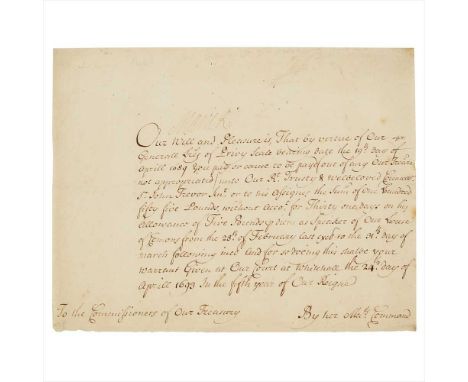 Our Will and Pleasure is, That by vertue of Our
Generall Lres of Privy Seale bearing date the 19th day of
Aprill 1689 You pay or cause to be paid out of any Our Treasure
not appropriated unto Our Rt. Trusty & welbeloved
Sr. John Trevor Knt. or to his Assignes the Sum of One hundred
fifty five Pounds, without Accot. for Thirty one dayes on his
Allowance of Five Pounds p diem as Speaker of Our House
of Comons from the 28th. of February last to the 31th. day of
March following And for so doeing this shalbe your
Warrant Given at Our Court at Whitehall the 24th. day of
Aprill 1693 In the fifth year of Our Reigne
To the Commissioners of Our Treasury
By her Mats. Command